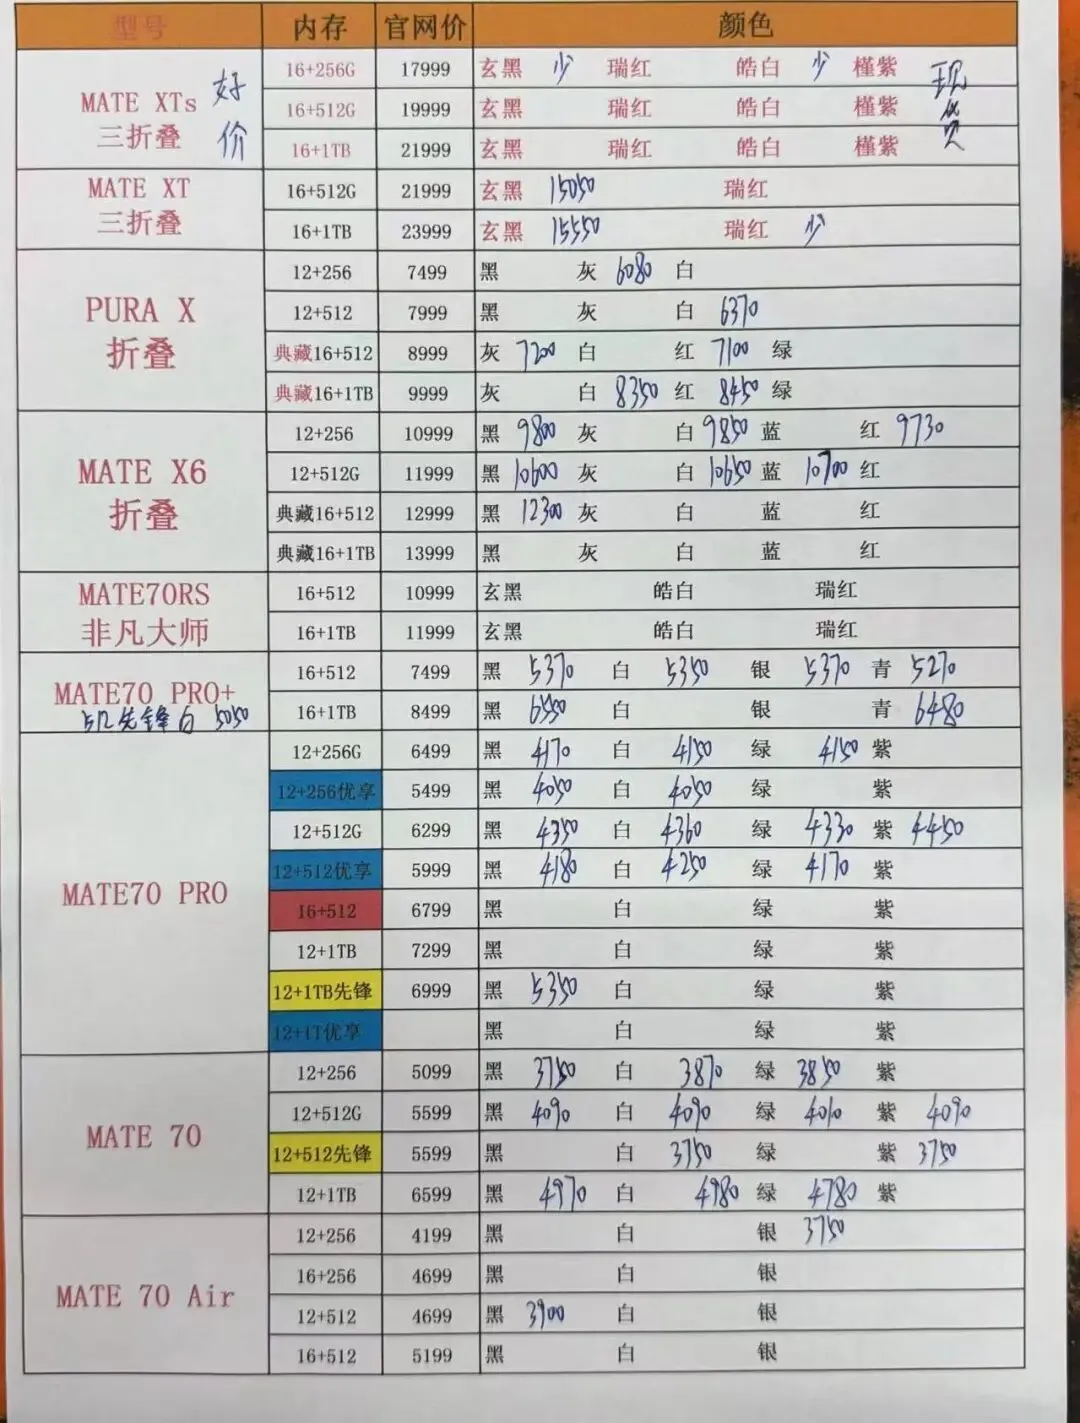 型号 内存 官网价 颜色
MATE XTs 三折叠 好价 现货
16+256G 17999 玄黑 少 瑞红 皓白 少 槿紫
16+512G 19999 玄黑 瑞红 皓白 槿紫
16+1TB 21999 玄黑 瑞红 皓白 槿紫
MATE XT 三折叠
16+512G 21999 玄黑 15050 瑞红
16+1TB 23999 玄黑 15550 瑞红 少
PURA X 折叠
12+256 7499 黑 灰 6080 白
12+512 7999 黑 灰 白 6370
典藏16+512 8999 灰 7200 白 红 7100 绿
典藏16+1TB 9999 灰 白 8350 红 8450 绿
MATE X6 折叠
12+256 10999 黑 9800 灰 白 9850 蓝 红 9730
12+512G 11999 黑 10600 灰 白 10650 蓝 10700 红
典藏16+512 12999 黑 12300 灰 白 蓝 红
典藏16+1TB 13999 黑 灰 白 蓝 红
MATE70RS 非凡大师
16+512 10999 玄黑 皓白 瑞红
16+1TB 11999 玄黑 皓白 瑞红
MATE70 PRO+
先锋白 5050
16+512 7499 黑 5370 白 5350 银 5370 青 5270
16+1TB 8499 黑 6550 白 银 青 6480
MATE70 PRO
12+256G 6499 黑 4170 白 4150 绿 4150 紫
12+256优享 5499 黑 4050 白 4050 绿 紫
12+512G 6299 黑 4350 白 4360 绿 4330 紫 4450
12+512优享 5999 黑 4180 白 4250 绿 4170 紫
16+512 6799 黑 白 绿 紫
12+1TB 7299 黑 白 绿 紫
12+1TB先锋 6999 黑 5350 白 绿 紫
12+1T优享 黑 白 绿 紫
MATE 70
12+256 5099 黑 3750 白 3870 绿 3850 紫
12+512G 5599 黑 4090 白 4090 绿 4010 紫 4090
12+512先锋 5599 黑 白 3750 绿 紫 3750
12+1TB 6599 黑 4970 白 4980 绿 4780 紫
MATE 70 Air
12+256 4199 黑 白 银 3750
16+256 4699 黑 白 银
12+512 4699 黑 3900 白 银
16+512 5199 黑 白 银